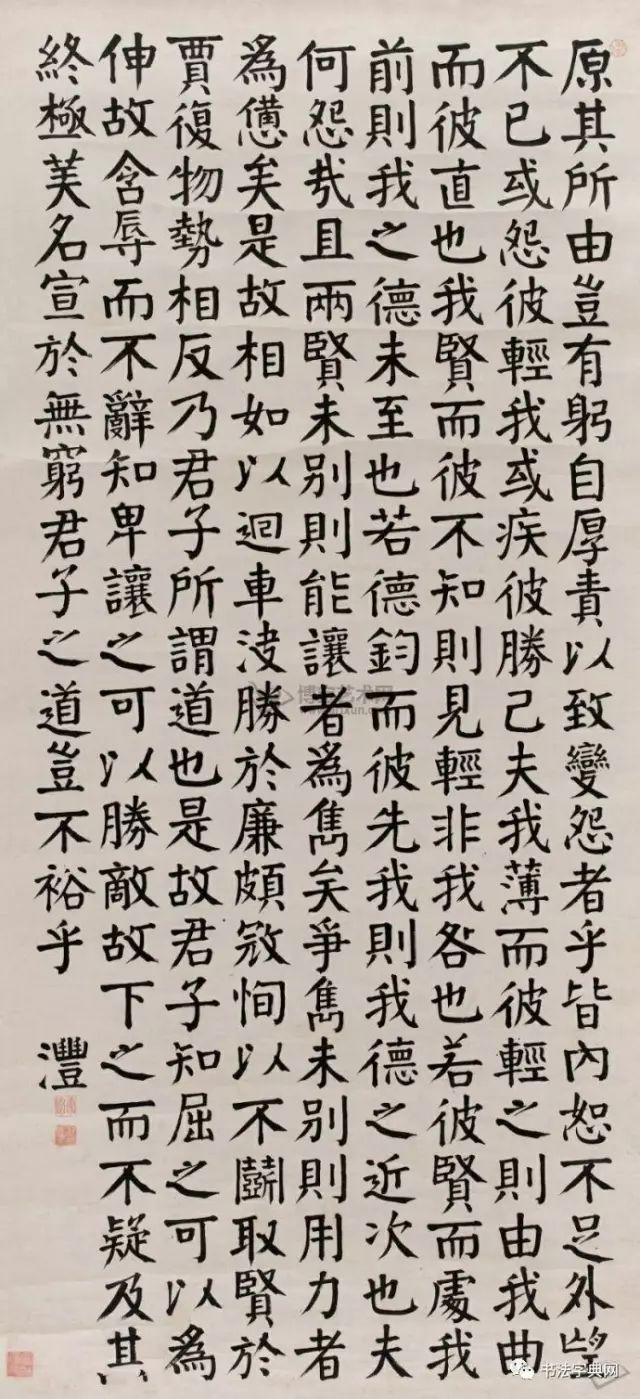 原其所由豈有躬自厚責以致變怨者乎皆內恕不足外望
不已或怨彼輕我或疾彼勝己夫我薄而彼輕之則由我曲
而彼直也我賢而彼不知則見輕非我咎也若彼賢而處我
前則我之德未至也若德鈞而彼先我則我德之近次也夫
何怨哉且兩賢未別則能讓者為雋矣爭雋未別則用力者
為憊矣是故相如以迴車決勝於廉頗寇恂以不鬭取賢於
賈復物勢相反乃君子所謂道也是故君子知屈之可以為
伸故含辱而不辭知卑讓之可以勝敵故下之而不疑及其
終極美名宣於無窮君子之道豈不裕乎
灃
书法字典网